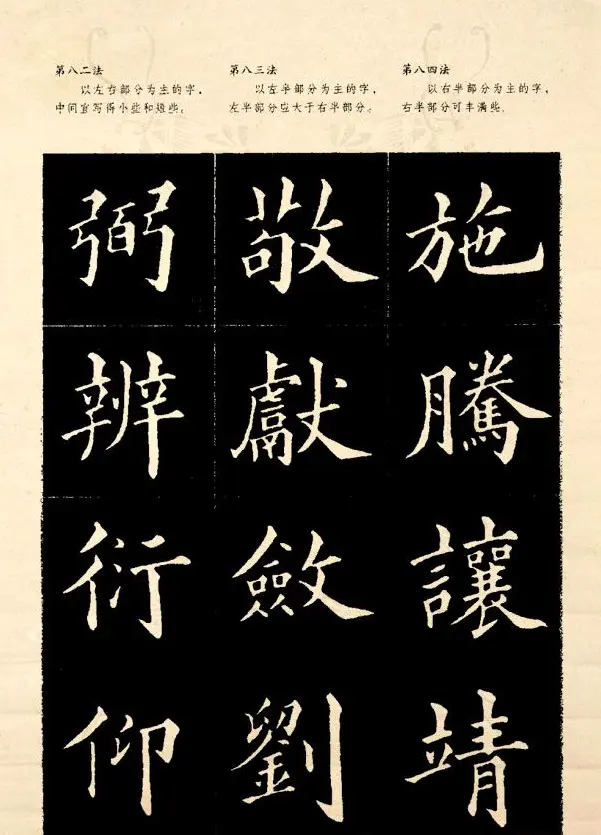 第八二法
以左右部分为主的字，
中间宜写得小些和短些。
第八三法
以左半部分为主的字，
左半部分应大于右半部分。
第八四法
以右半部分为主的字，
右半部分可丰满些。
弼
辨
衍
仰
敬
獻
斂
劉
施
騰
讓
靖